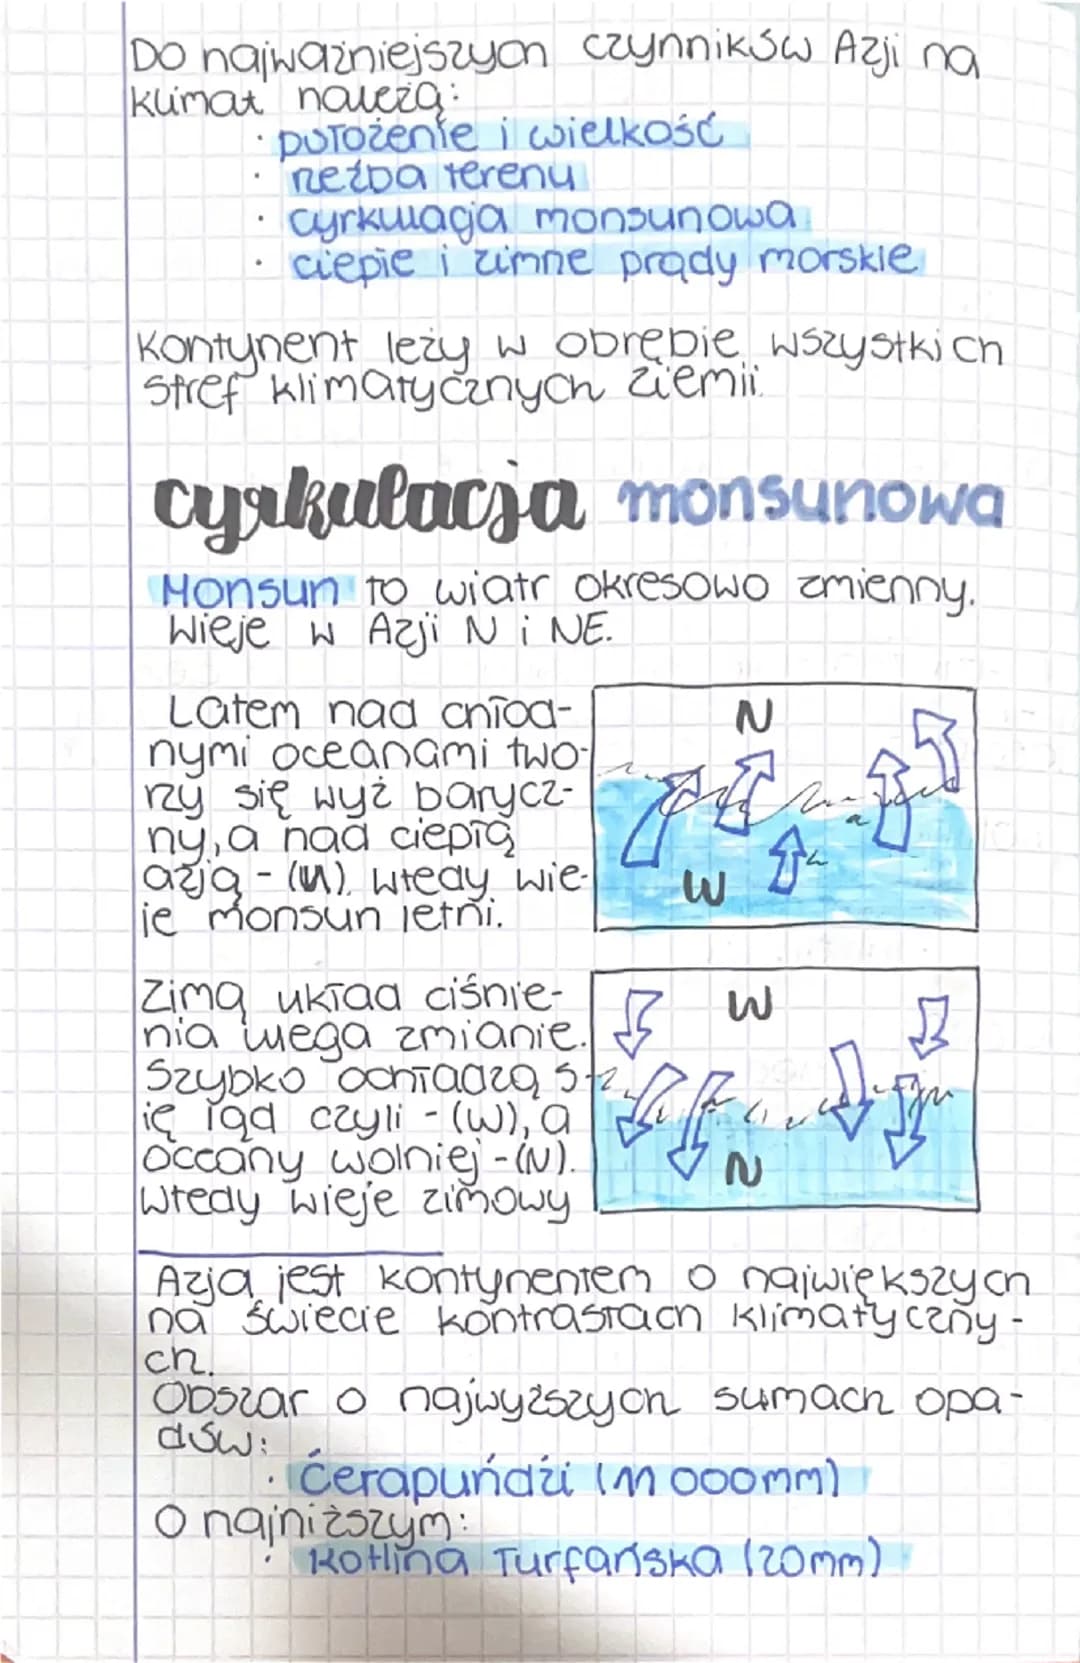 Do najważniejszych czynników Azji na
klimat należą:
· położenie i wielkość
· rzeźba terenu
· cyrkulacja monsunowa
· ciepłe i zimne prądy morskie
Kontynent leży w obrębie wszystkich
stref klimatycznych ziemii.
cyrkulacja monsunowa
Monsun to wiatr okresowo zmienny.
Wieje w Azji N i NE.
Latem nad chłod-
nymi oceanami two-
rzy się wyż barycz-
ny, a nad ciepłą
azją - (N). Wtedy wie-
je monsun letni.
N
W
Zimą układ ciśnie-
nia ulega zmianie.
Szybko ochładza s-
ię ląd czyli - (W), a
oceany wolniej - (N).
Wtedy wieje zimowy
W
N
Azja jest kontynentem o największych
na świecie kontrastach klimatyczny-
ch.
Obszar o najwyższych sumach opa-
dów:
· Ćerapuńdżi (11 000mm)
O najniższym:
· Kotlina Turfańska (20mm)